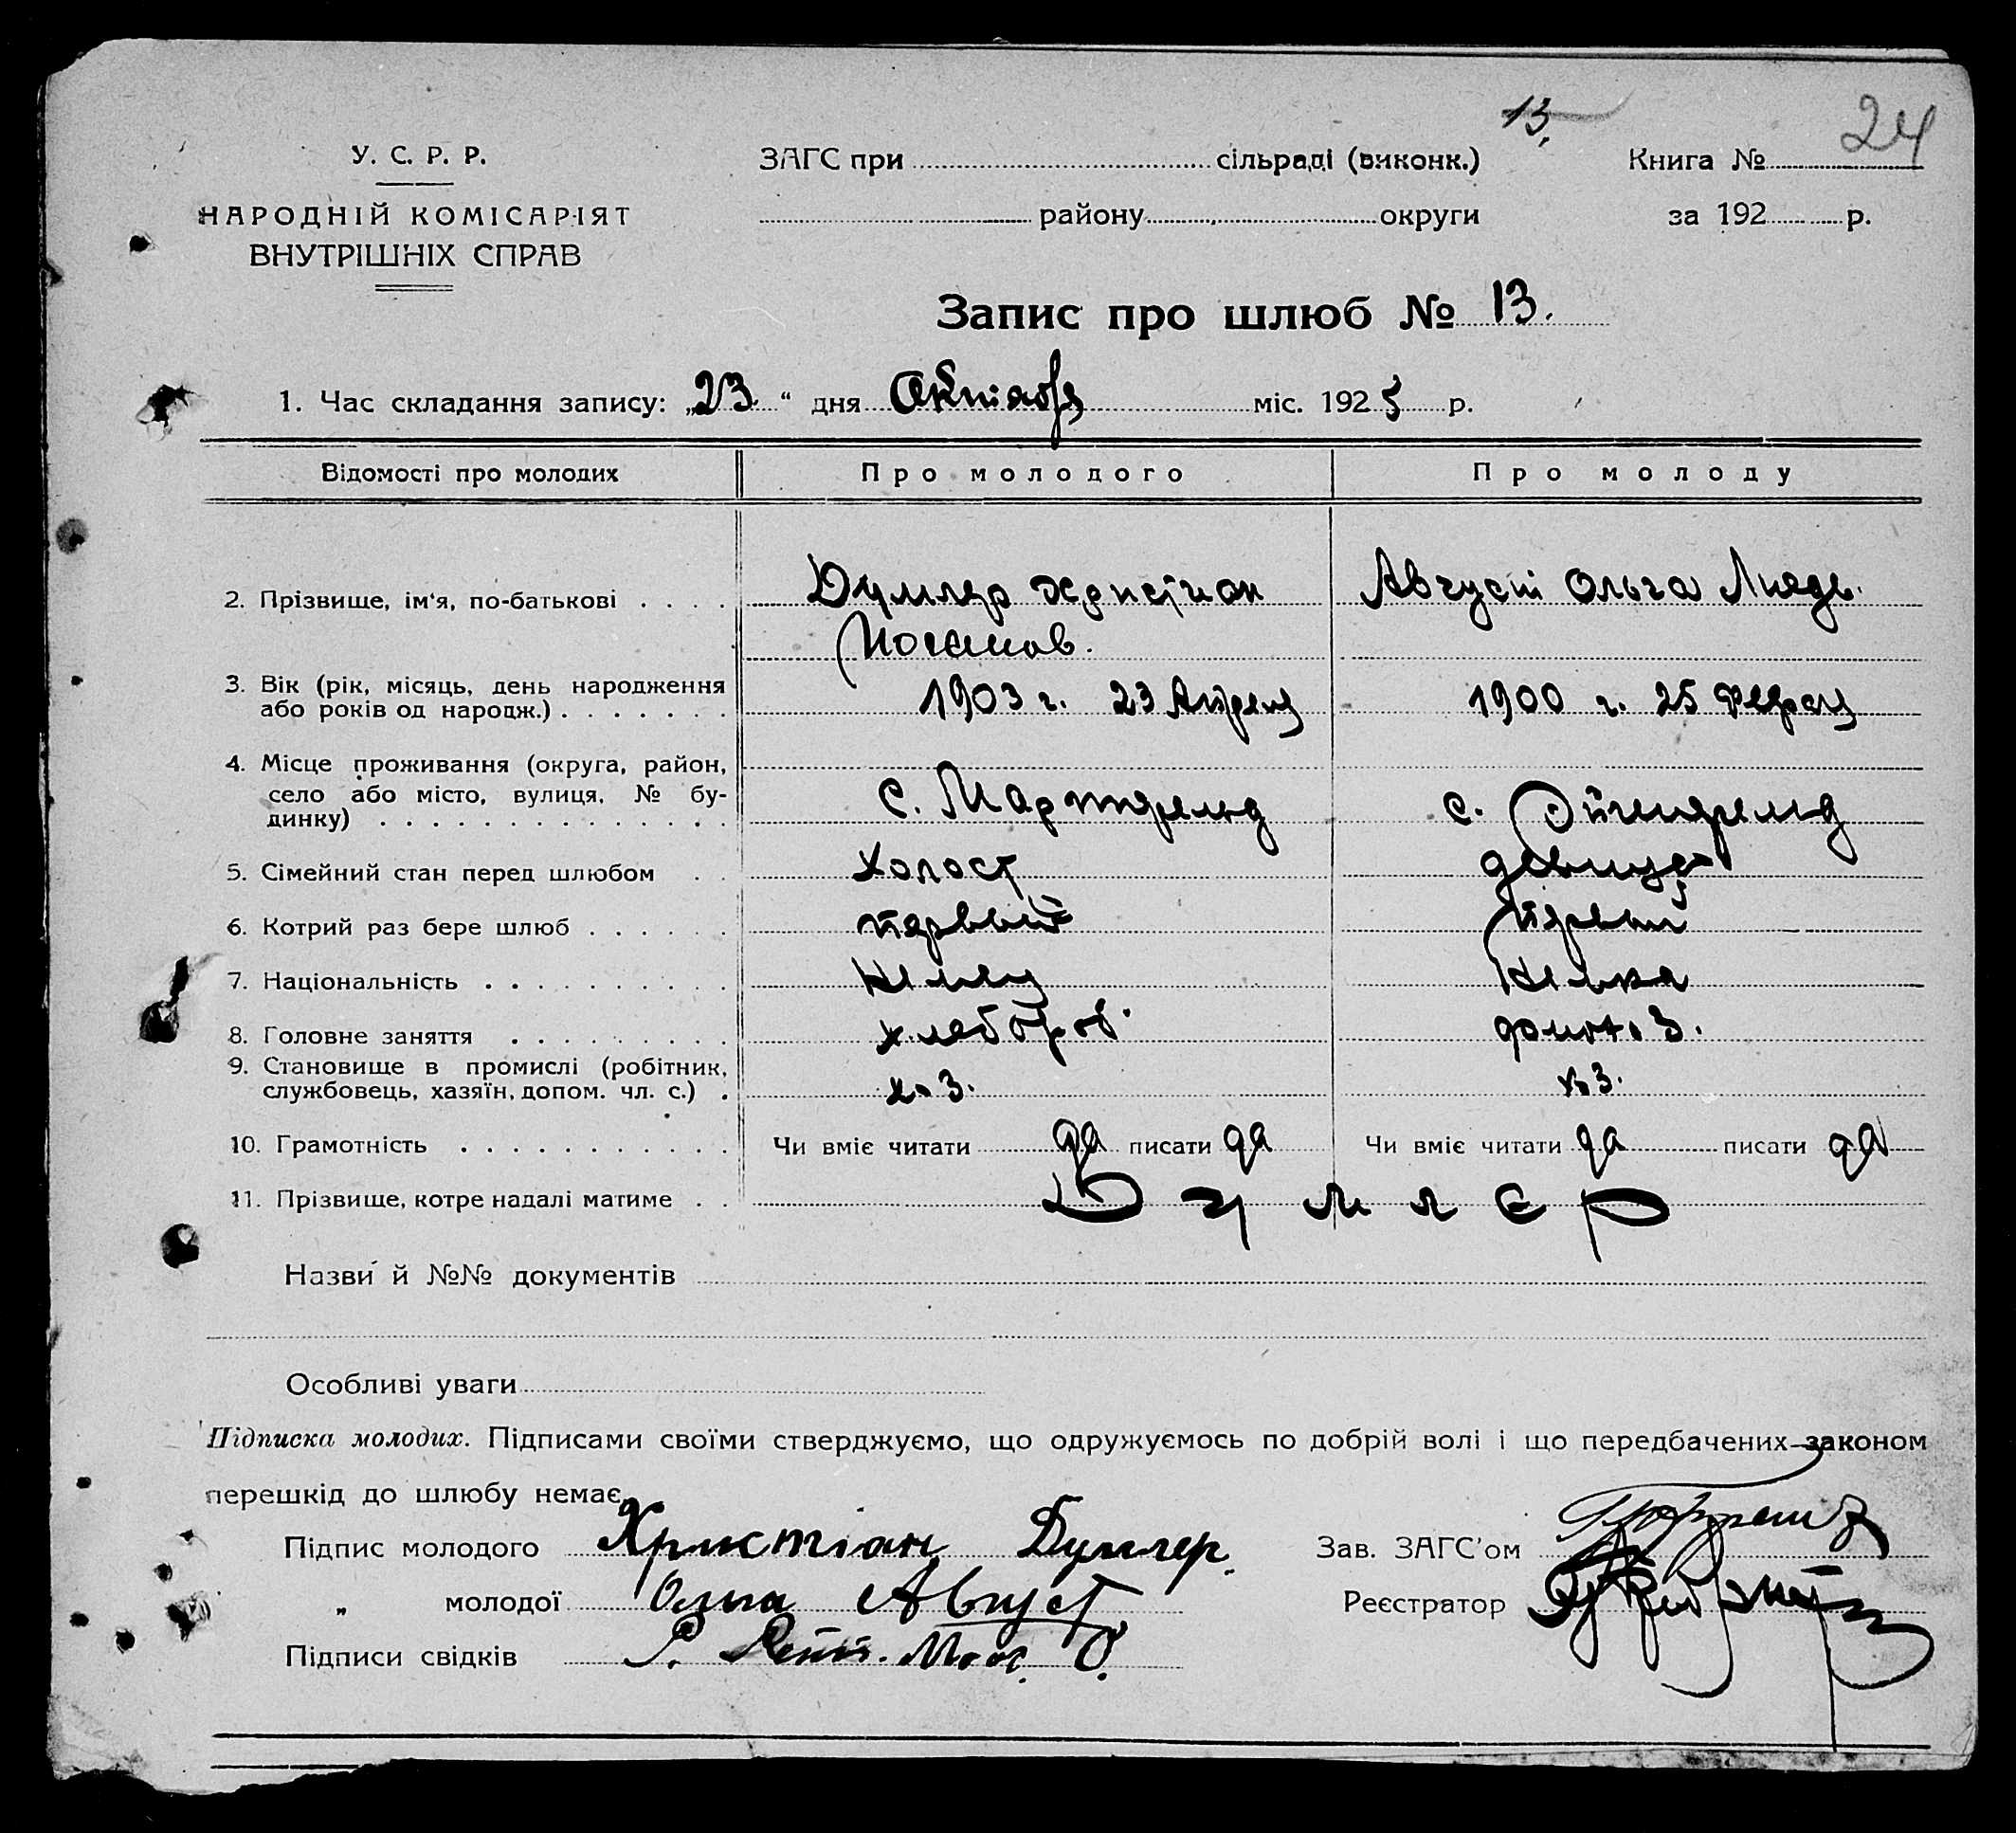 13.
24
У. С. Р. Р.
НАРОДНІЙ КОМІСАРІЯТ
ВНУТРІШНІХ СПРАВ
ЗАГС при сільраді (виконк.)
району округи
Книга №
за 192 р.
Запис про шлюб № 13.
1. Час складання запису: „23.“ дня Октября міс. 1925 р.
Відомості про молодих Про молодого Про молоду
2. Прізвище, ім'я, по-батькові Думлер Христиан Август Ольга
3. Вік (рік, місяць, день народження
або років од народж.) 1903 г. 23 Апреля 1900 г. 25 Февраля
4. Місце проживання (округа, район,
село або місто, вулиця, № бу-
динку) с. с.
5. Сімейний стан перед шлюбом холост девица
6. Котрий раз бере шлюб первый первый
7. Національність немец немка
8. Головне заняття хлебороб. домохоз.
9. Становище в промислі (робітник,
службовець, хазяїн, допом. чл. с.) хоз. хоз.
10. Грамотність Чи вміє читати да писати да Чи вміє читати да писати да
11. Прізвище, котре надалі матиме Думлер
Назви й №№ документів
Особливі уваги
Підписка молодих. Підписами своїми стверджуємо, що одружуємось по добрій волі і що передбачених законом
перешкід до шлюбу немає.
Підпис молодого Христіан Думлер. Зав. ЗАГС'ом
„ молодої Ольга Август Реєстратор
Підписи свідків